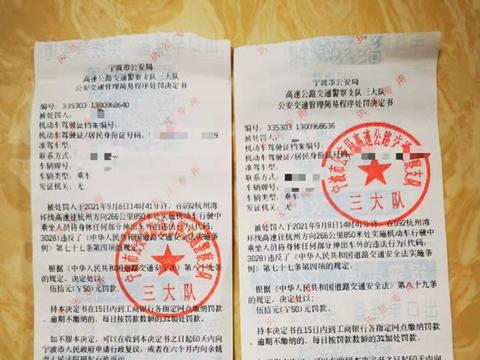 宁波市公安局
高速公路交通警察支队三大队
公安交通管理简易程序处罚决定书
编号：335303 1300968640
被处罚人：
机动车驾驶证档案编号：
机动车驾驶证/居民身份证号码：9
准驾车型：
联系方式：
车辆牌号：
车辆类型：乘车
发证机关：无
被处罚人于2021年9月8日14时41分许，在G92杭州湾
环线高速往杭州方向266公里850处实施机动车行驶中
乘坐人员将身体任何部分伸出车外的违法行为(代码：
3028)违反了《中华人民共和国道路交通安全法实施条例》
第七十七条第四项的规定，
根据《中华人民共和国道路交通安全法》第八十九条
的规定，决定处以：
伍拾元(￥50)元罚款。
持本决定书在15日内到工商银行各指定网点缴纳罚款
逾期不缴纳的，每日按罚款数额的3%加处罚款。
如不服本决定，可以在收到本决定书之日起60天内向
宁波市人民政府申请行政复议；或者在六个月内向余姚
三大队
宁波市公安局
高速公路交通警察支队三大队
公安交通管理简易程序处罚决定书
编号：335303 1300968636
被处罚人：
机动车驾驶证档案编号：
机动车驾驶证/居民身份证号码：
准驾车型：
联系方式：
车辆牌号：
车辆类型：乘车
发证机关：无
被处罚人于2021年9月8日14时41分许，在G92杭州湾
环线高速往杭州方向266公里850米处实施机动车行驶中
乘坐人员将身体任何部分伸出车外的违法行为(代码：
3028)违反了《中华人民共和国道路交通安全法实施条例》
第七十七条第四项的规定，
根据《中华人民共和国道路交通安全法》第八十九条
的规定，决定处以：
伍拾元(￥50)元罚款。
持本决定书在15日内到工商银行各指定网点缴纳罚款
逾期不缴纳的，每日按罚款数额的3%加处罚款。
如不服本决定，可以在收到本决定书之日起60天内向
三大队